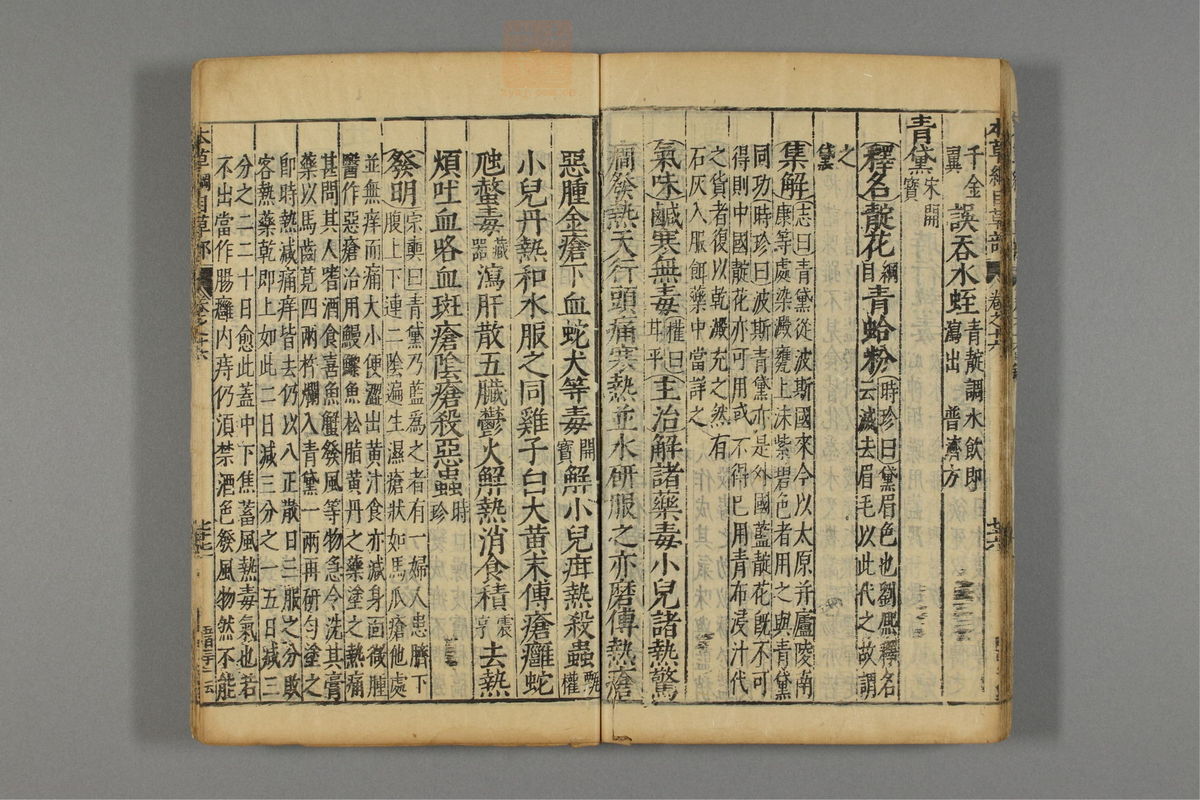 千金
翼
誤吞水蛭
青靛調水飲即
瀉出 普濟方
青黛
宋開
寶
釋名
靛花
綱
目
青蛤粉
時珍曰黛眉色也劉熙釋名
云滅去眉毛以此代之故謂
之
黛
集解
志曰青黛從波斯國來今以太原并廬陵南
康等處染澱甕上沫紫碧色者用之與青黛
同功時珍曰波斯青黛亦是外國藍靛花既不可
得則中國靛花亦可用或不得已用青布浸汁代
之貨者復以乾澱充之然有
石灰入服餌藥中當詳之
氣味
鹹寒無毒
權曰
甘平
主治
解諸藥毒小兒諸熱驚
癇發熱天行頭痛寒熱並水研服之亦磨傅熱瘡
惡腫金瘡下血蛇犬等毒
開
寶
解小兒疳熱殺蟲
甄
權
小兒丹熱和水服之同雞子白大黃末傅瘡癰蛇
虺螫毒
藏
器
瀉肝散五臟鬱火解熱消食積
震
亨
去熱
煩吐血咯血斑瘡陰瘡殺惡蟲
時
珍
發明
宗奭曰青黛乃藍爲之者有一婦人患臍下
腹上下連二陰遍生濕瘡狀如馬瓜瘡他處
並無痒而痛大小便澀出黃汁食亦減身面微腫
醫作惡瘡治用鰻鱺魚松脂黃丹之藥塗之熱痛
甚問其人嗜酒食喜魚蟹發風等物急令洗其膏
藥以馬齒莧四兩杵爛入青黛一兩再研勻塗之
即時熱減痛痒皆去仍以八正散日三服之分敗
客熱藥乾即上如此二日減三分之一五日減三
分之二二十日愈此蓋中下焦蓄風熱毒氣也若
不出當作腸癰內痔仍須禁酒色發風物然不能
本草綱目草部
卷之十六